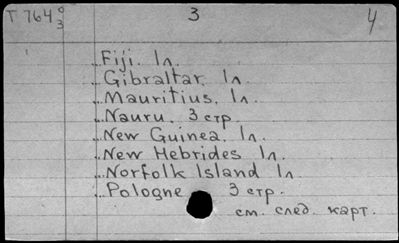 T 764 0/3 3 4
„Fiji. 1л.
„Gibraltar. 1л.
„Mauritius. 1л.
„Nauru. 3 стр.
„New Guinea. 1л.
„New Hebrides 1л
„Norfolk Island 1л
„Pologne 3 стр.
см. след. карт.